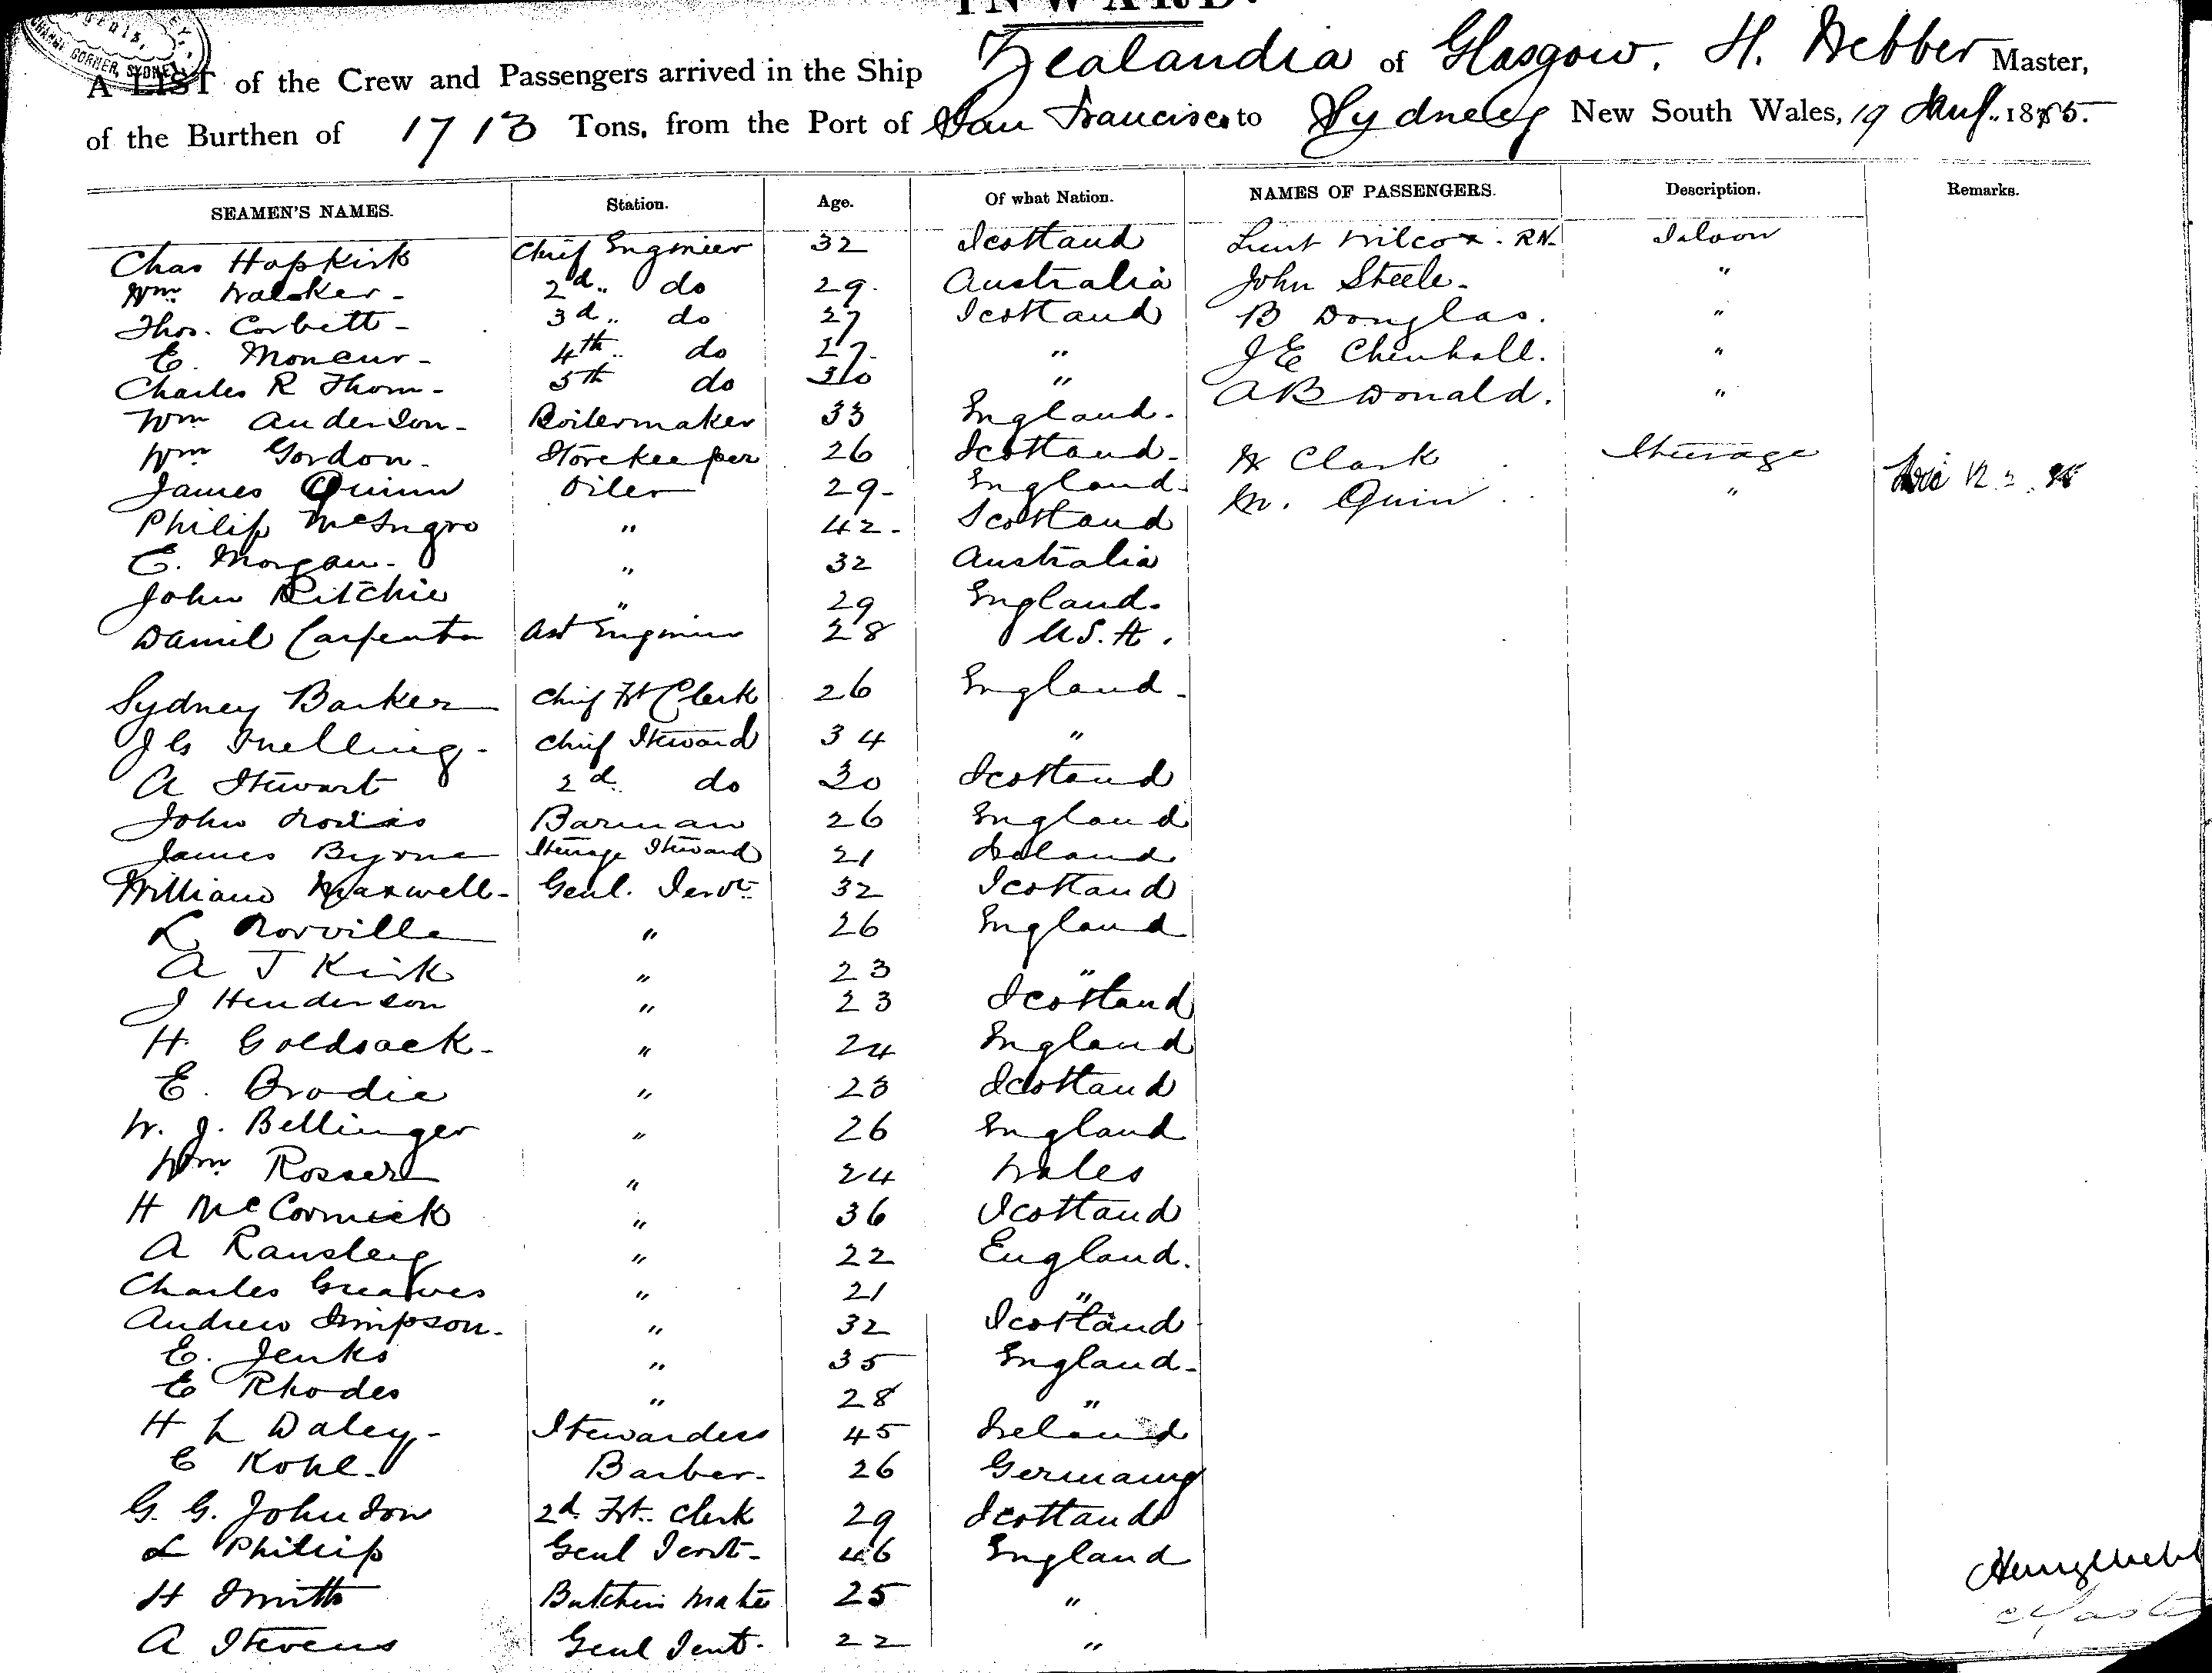 INWARD.
CORNER, SYDNEY
A LIST of the Crew and Passengers arrived in the Ship Zealandia of Glasgow. H. Webber Master,
of the Burthen of 1713 Tons, from the Port of San Francisco to Sydney New South Wales, 19 1885.
SEAMEN'S NAMES. Station. Age. Of what Nation. NAMES OF PASSENGERS. Description. Remarks.
Chas Hopkirk Chief Engineer 32 Scotland Lieut Wilcox. RN. Saloon
Wm Walker - 2d.. do 29. Australia John Steele - "
Thos. Corbett - 3d.. do 27 Scotland B Douglas. "
E. Moncur - 4th.. do 27. " J E Chenhall. "
Charles R Thom - 5th do 30 " A B Donald. "
Wm Anderson - Boilermaker 33 England.
Wm Gordon. Storekeeper 26 Scotland. Clark Steerage
James Quinn Oiler 29 - England. M. Quin "
Philip McIngro " 42 - Scotland
E. Morgan - " 32 Australia
John Ritchie " 29 England.
Daniel Carpenter Asst Engineer 28 U.S.A.
Sydney Barker Chief Frt Clerk 26 England -
J G Snelling - Chief Steward 34 "
A Stewart 2d. do 30 Scotland
John Barman 26 England
James Byrne Steerage Steward 21 Ireland
William Maxwell - Genl. Servt. 32 Scotland
L Norville " 26 England
A J Kirk " 23 "
J Henderson " 23 Scotland
H. Goldsack - " 24 England
E. Brodie " 23 Scotland
W. J. Bellinger " 26 England
Wm Rosser " 24 Wales
H McCormick " 36 Scotland
A Ransley " 22 England.
Charles Greaves " 21 "
Andrew Simpson - " 32 Scotland
E. Jenks " 35 England -
E Rhodes " 28 "
H L Daley - Stewardess 45 Ireland
E Kohl - Barber - 26 Germany
G. G. Johnson 2d. Frt. Clerk 29 Scotland
L Philip Genl Servt - 46 England
H Smith Butchers Mate 25 "
A Stevens Genl Servt - 22 "